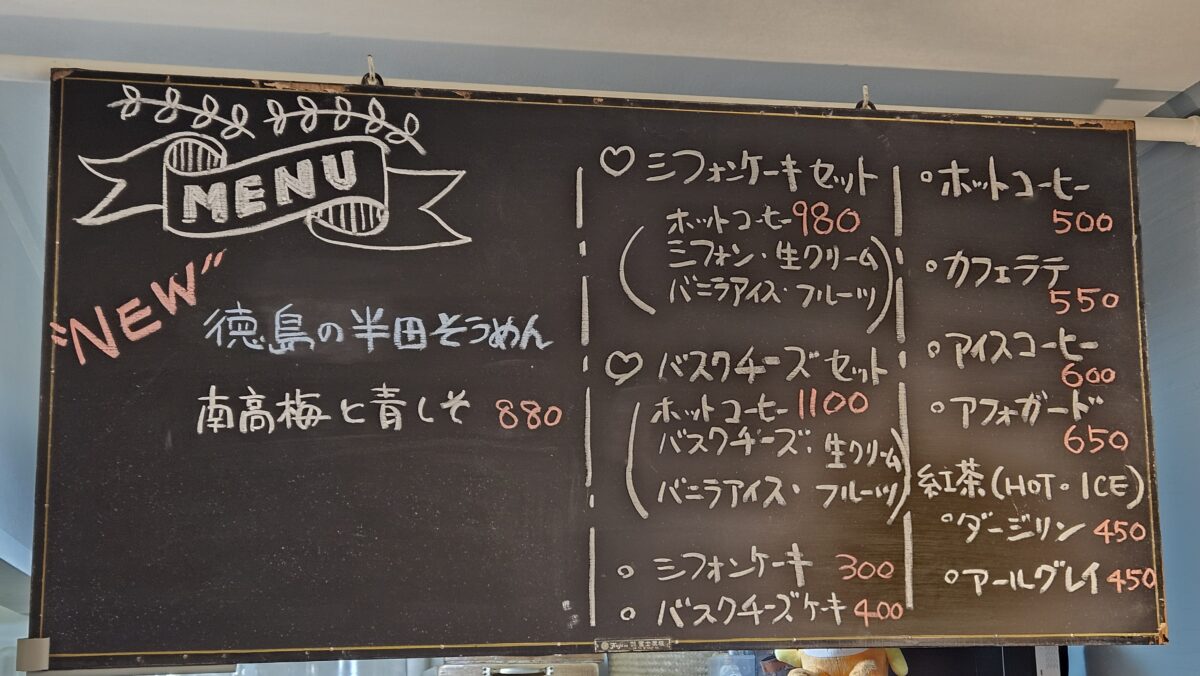 MENU
"NEW"
徳島の半田そうめん
南高梅と青しそ 880
♡ シフォンケーキセット
ホットコーヒー 980
(シフォン・生クリーム
バニラアイス・フルーツ)
♡ バスクチーズセット
ホットコーヒー 1100
(バスクチーズ・生クリーム
バニラアイス・フルーツ)
○ シフォンケーキ 300
○ バスクチーズケーキ 400
○ホットコーヒー
500
○カフェラテ
550
○アイスコーヒー
600
○アフォガード
650
紅茶(HOT・ICE)
○ダージリン 450
○アールグレイ 450